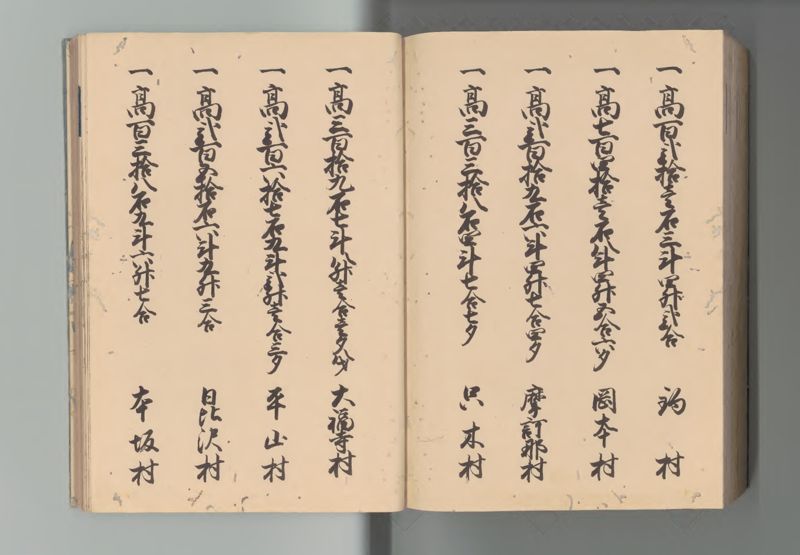 一高百弐拾壱石三斗四升弐合 鈎村
一高七百四拾壱石八斗四升五合六夕 岡本村
一高弐百拾五石六斗四升七合四夕 摩訶耶村
一高三百三拾八石四斗七合七夕 只木村
一高三百拾九石七斗八升壱合壱夕八才 大福寺村
一高弐百六拾七石五斗弐升壱合三夕 平山村
一高弐百五拾石六斗五升三合 日比沢村
一高百三拾八石五斗六升七合 本坂村